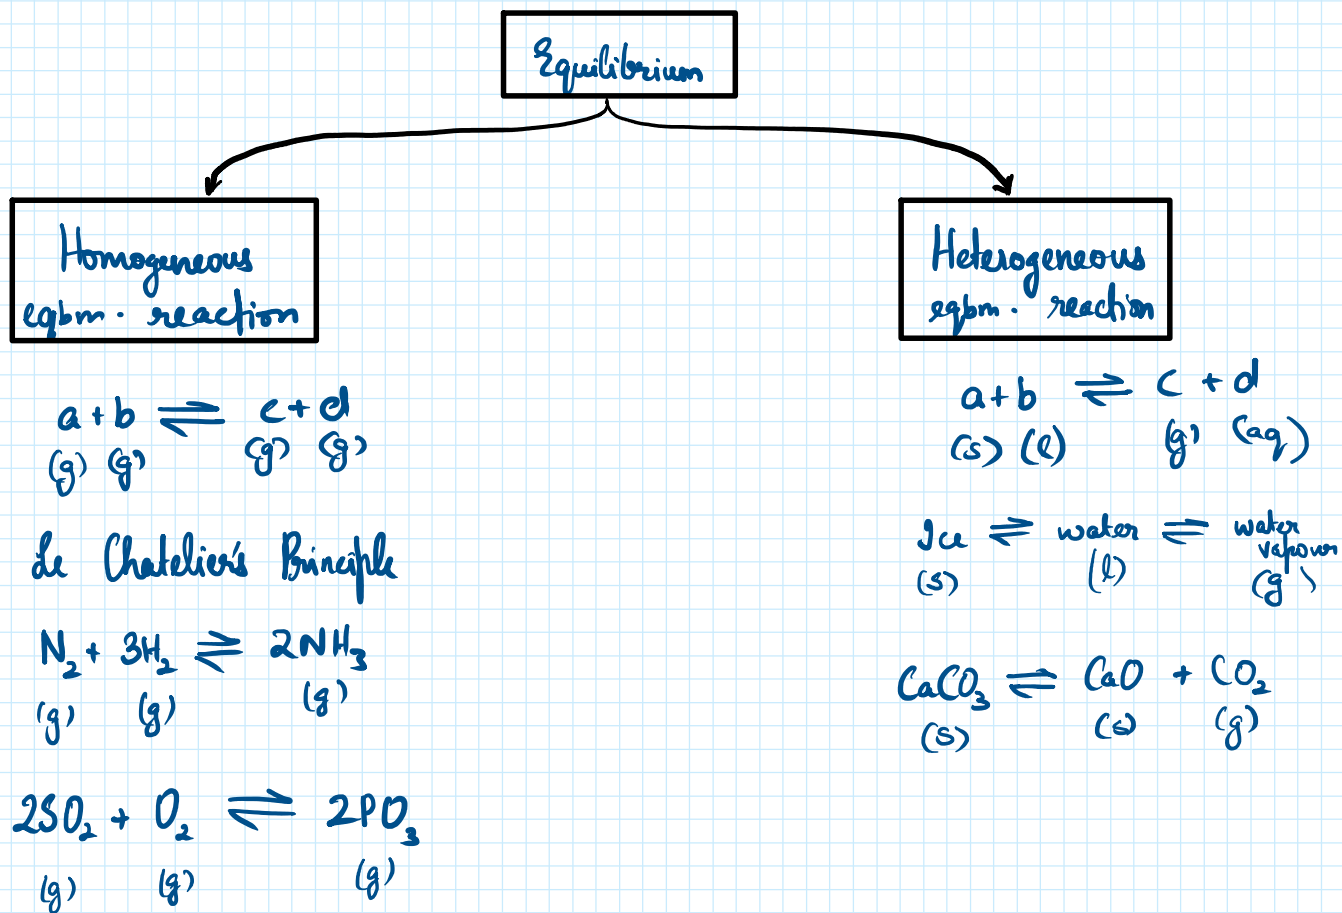 Equilibrium
Homogeneous
eqbm. reaction
a + b ⇌ c + d
(g) (g) (g) (g)
Le Chatelier's Principle
N₂ + 3H₂ ⇌ 2NH₃
(g) (g) (g)
2SO₂ + O₂ ⇌ 2PO₃
(g) (g) (g)
Heterogeneous
eqbm. reaction
a + b ⇌ c + d
(s) (l) (g) (aq)
Ice ⇌ water ⇌ water vapour
(s) (l) (g)
CaCO₃ ⇌ CaO + CO₂
(s) (s) (g)